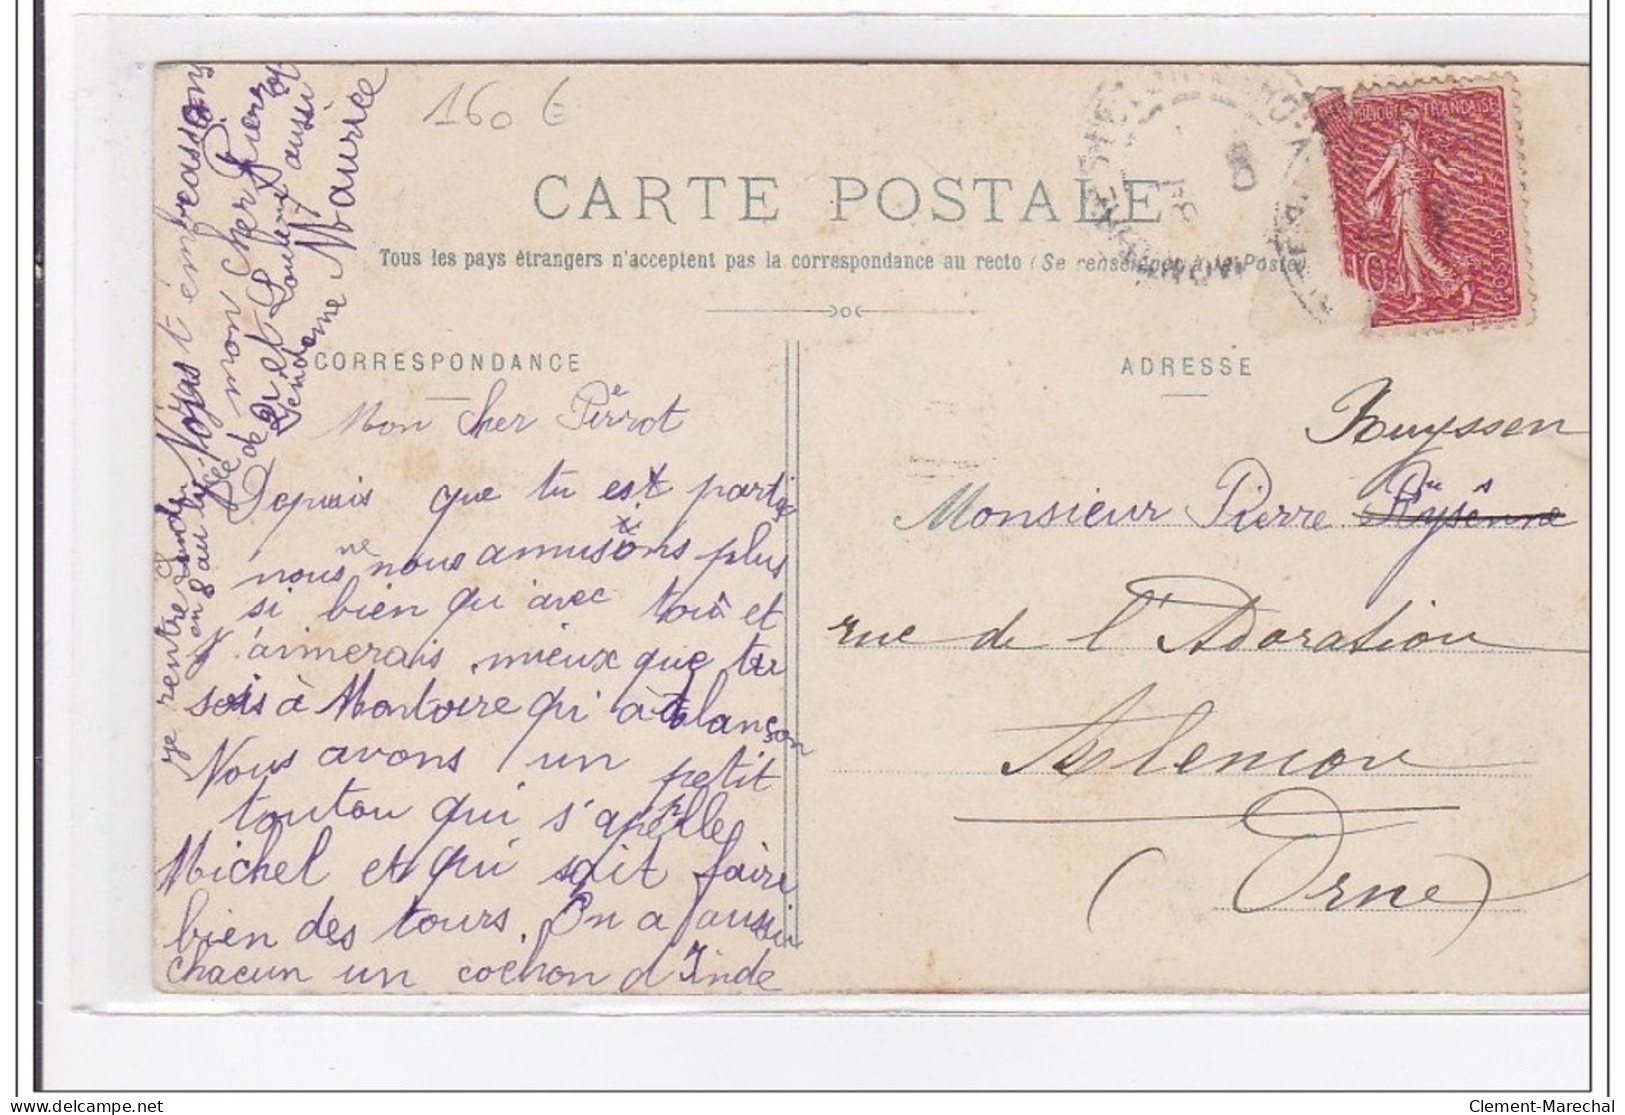 160 €
CARTE POSTALE
Tous les pays étrangers n'acceptent pas la correspondance au recto (Se renseigner à la Poste)
RÉPUBLIQUE FRANÇAISE
POSTES
10
CORRESPONDANCE
ADRESSE
Mon cher Pierrot
Depuis que tu est parti
nous ne nous amusons plus
si bien qu'avec toi et
J'aimerais mieux que tu
sois à Montoire qu'à Alançon
Nous avons un petit
toutou qui s'apelle
Michel et qui sait faire
bien des tours. On a aussi
chacun un cochon d'Inde
je rentre Lundi
en 8 au lycée de
Vendôme
Nous t'embrassons
mon cher Pierrot
et Loulou aussi
Maurice
Ruyssen
Monsieur Pierre Rüysênne
rue de l'Adoration
Alencon
(Orne)
Clement-Marechal